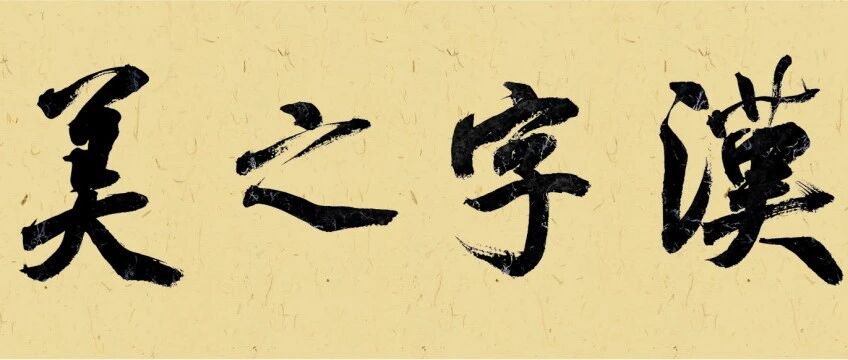 漢字之美